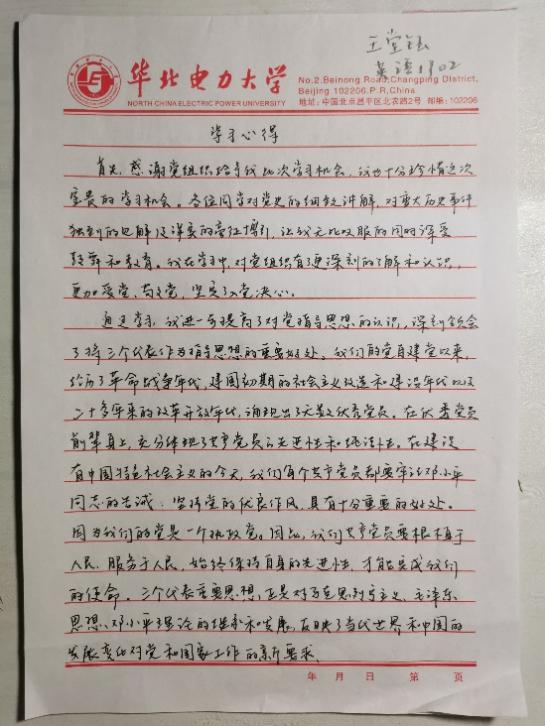 王堂钰
英语1902
华北电力大学
NORTH CHINA ELECTRIC POWER UNIVERSITY
No.2.Beinong Road,Changping District,
Beijing 102206.P.R,China
地址:中国北京昌平区北农路2号 邮编:102206
学习心得
首先,感谢党组织给予我此次学习机会,我也十分珍惜这次
宝贵的学习机会。各位同学对党史的细致讲解,对重大历史事件
独到的见解及详实的旁征博引,让我无比叹服的同时深受
鼓舞和教育。我在学习中,对党组织有了更深刻的了解和认识,
更加爱党、向党,坚定了入党决心。
通过学习,我进一步提高了对党指导思想的认识,深刻领会
了将三个代表作为指导思想的重要好处。我们的党自建党以来,
经历了革命战争年代,建国初期的社会主义改造和建设年代以及
二十多年来的改革开放年代,涌现出了无数优秀党员。在优秀党员
前辈身上,充分体现了共产党员的先进性和纯洁性。在建设
有中国特色社会主义的今天,我们每个共产党员都要牢记邓小平
同志的告诫:坚持党的优良作风,具有十分重要的好处。
因为我们的党是一个执政党。因此,我们共产党员要根植于
人民,服务于人民,始终保持自身的先进性,才能完成我们
的使命。三个代表重要思想,正是对马克思列宁主义、毛泽东
思想、邓小平理论的继承和发展,反映了当代世界和中国的
发展变化对党和国家工作的新要求。
年 月 日 第 页